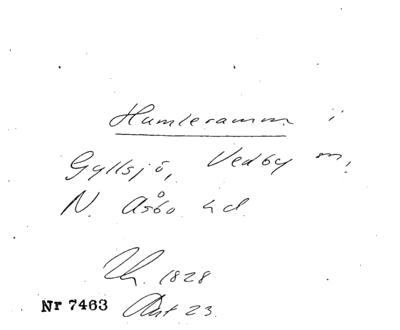 Humleramm i
Gyllsjö, Vedby m,
N. Åsbo hd
1828
Nr 7463 23.